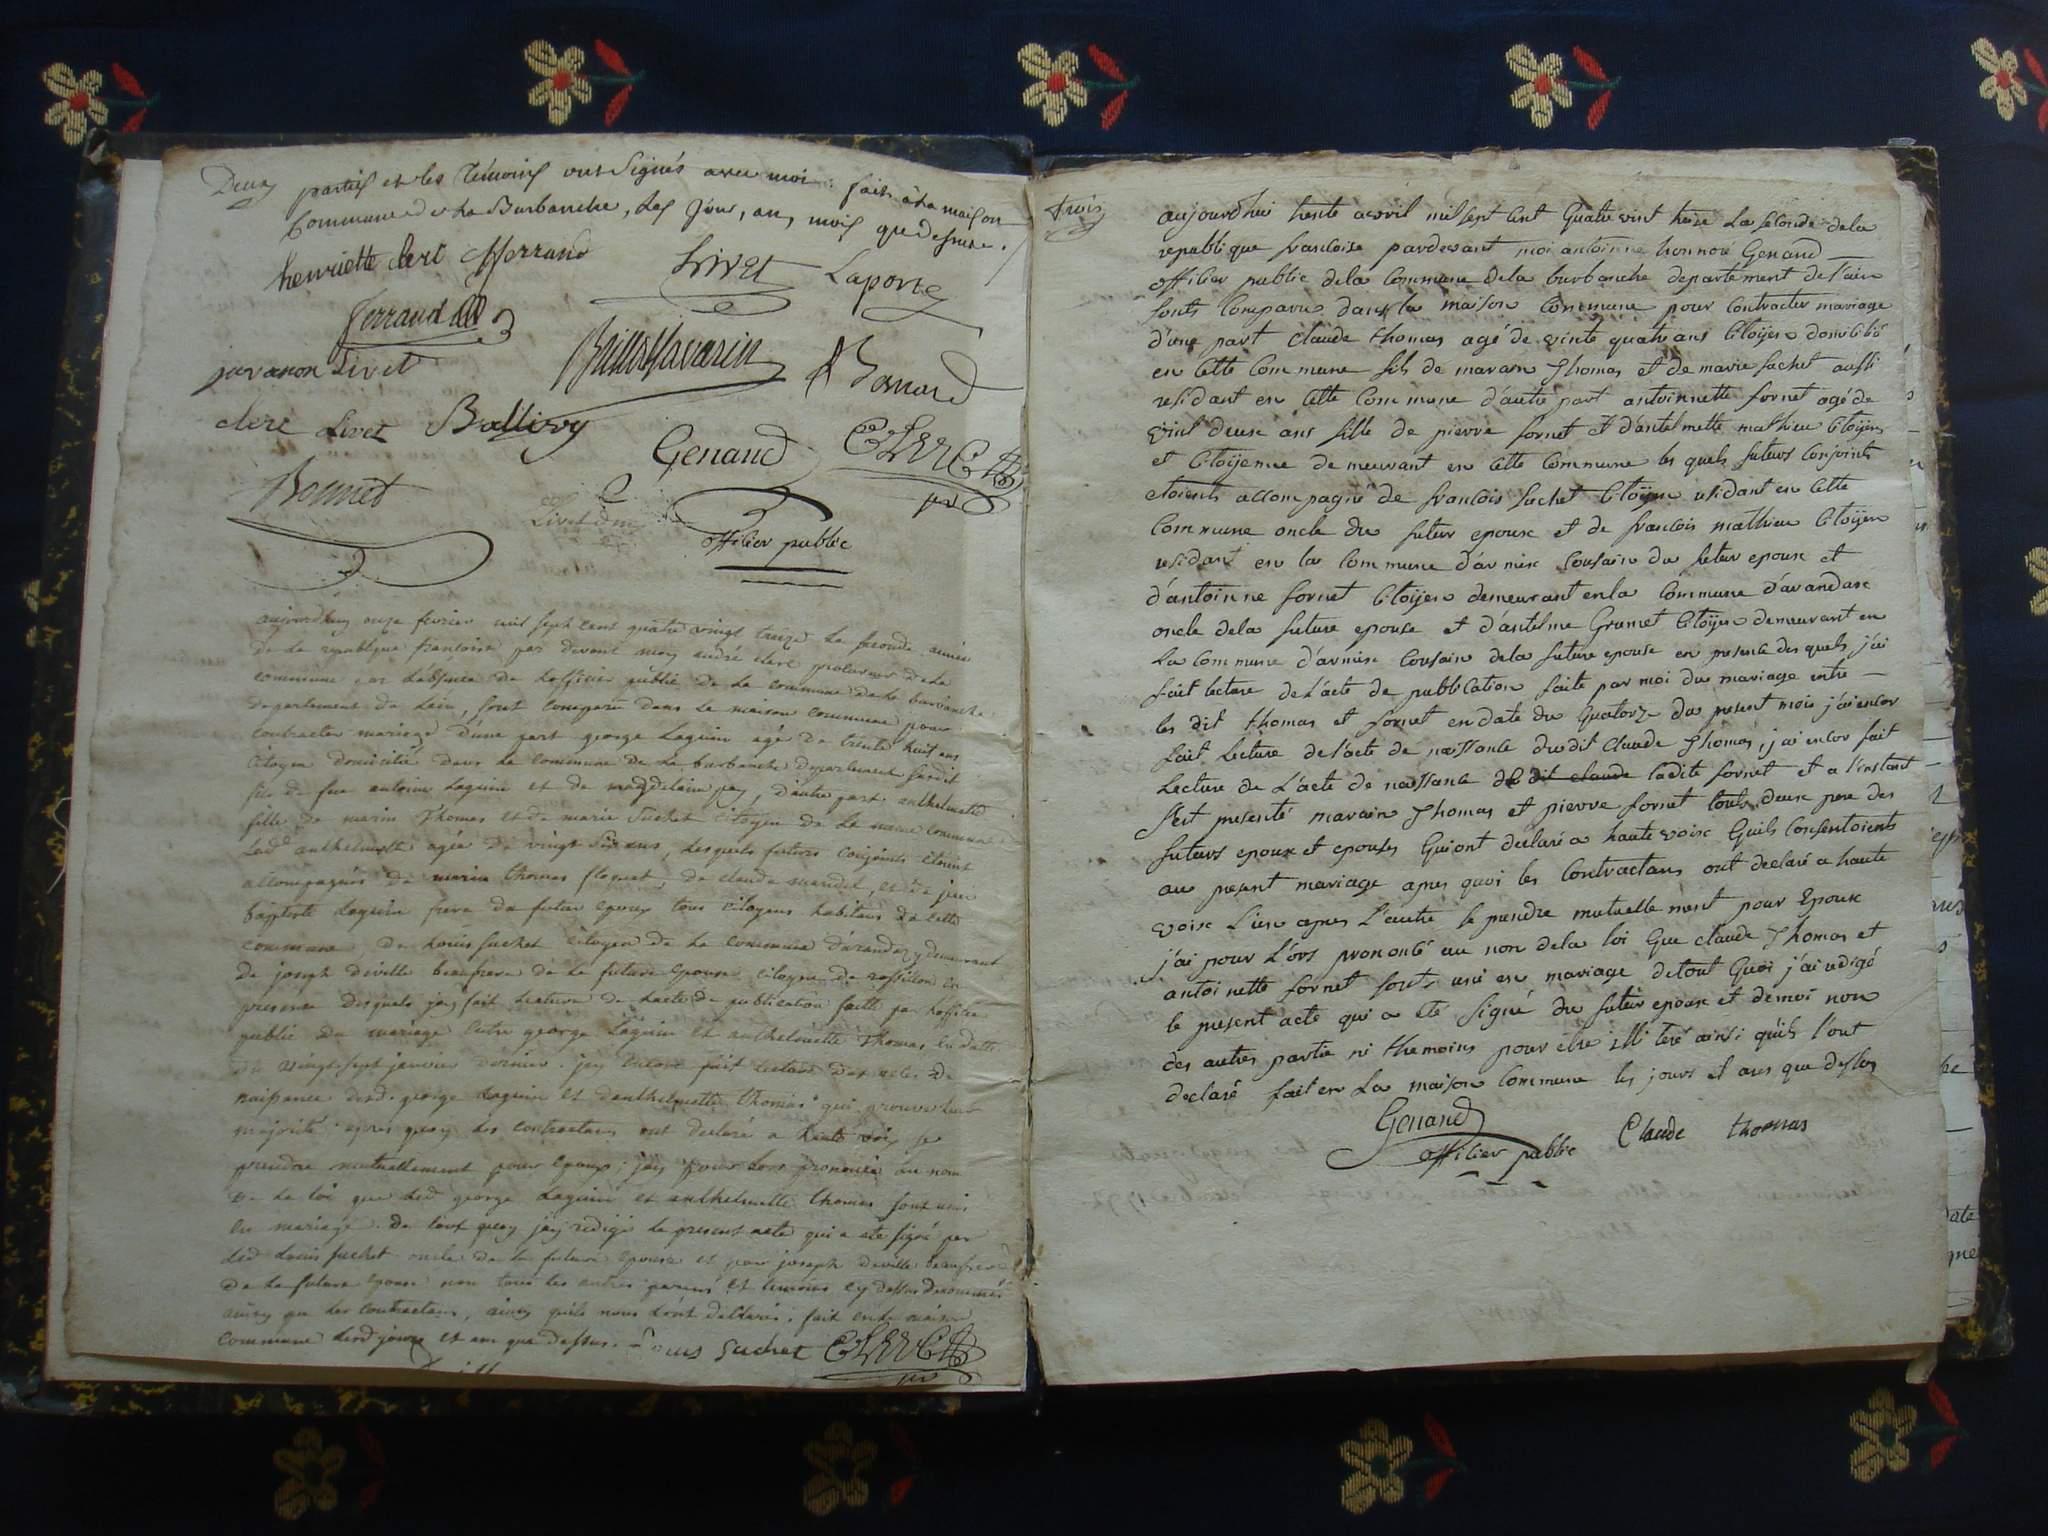 Deux
parties et les témoins ont signés avec moi : fait à la maison
Commune de La Burbanche, les jour, an, mois que dessus.
henriette clerc Ferrand Livet Laporte
Ferrand
javanon Livet Brillatsavarin Bonard
clerc Livet Ballivy Genaud CLERC
Bonnet pr
officier public
aujourdhuy onze fevrier mil sept cens quatre vingt treize la seconde année
de la republique françoise par devant moy andré clerc procureur de la
commune par l'absence de lofficier public de la commune de la burbanche
departement de Lain, sont comparu dans la maison commune pour
contracter mariage d'une part george Laguin agé de trente huit ans
Citoyen domicilié dans la commune de la burbanche departement susdit
fils de feu antoine Laguin et de magdelaine pey, d'autre part anthelmette
fille de marin Thomas et de marie Suchet citoyen de la meme commune
lad anthelmette agée de vingt six ans, lesquels futurs conjoints étoient
accompagnés de marin thomas floquet, de claude mandel, et de jean
baptiste Laguin frere du futur epoux tous citoyens habitans de cette
commune, de Louis Suchet citoyen de la commune d'arandaz y demeurant
de joseph deville beaufrere de la future epouse citoyen de rossillon en
presence desquels jay fait lecture de lacte de publication faitte par lofficier
public du mariage entre george Laguin et anthelmette Thomas, en datte
du vingt sept janvier dernier. jay encore fait lecture des actes de
naissance dud. george Laguin et danthelmette thomas qui prouve leur
majorité apres quoy les contractans ont declaré a haute voix se
prendre mutuellement pour epoux ; jay pour lors prononcé au nom
de la loi que led george Laguin et anthelmette thomas sont unis
en mariage. de tout quoy jay redigé le present acte qui a eté signé par
led Louis suchet oncle de la future epouse et par joseph deville beaufrere
de la future epouse non tous les autres parens et temoins cy dessus denommés
ainsy que les contractans, ainsy quils nous l'ont declarés. fait en la maison
commune lesd jours et an que dessus. Louis Suchet CLERC
pr
trois
aujourdhui trente avril mil sept cent quatre vint treize La seconde de la
republique francoise pardevant moi antoinne honnoré Genaud
officier public dela Commune dela burbanche departement de l'ain
sonts Comparu dans la maison Commune pour Contracter mariage
d'une part Claude thomas agé de vinte quatre ans Citoÿen domicilié
en Cette Commune fils de marain Thomas et de marie suchet aussi
residant en Cette Commune d'autre part antoinnette fornet agé de
vint deux ans fille de pierre fornet et d'antelmette mathieu Citoÿen
et Citoÿenne de meurant en Cette Commune les quels futurs Conjoints
etoients accompagné de francois suchet Citoÿen residant en Cette
Commune oncle du futur epoux et de francois mathieu Citoÿen
residant en la Commune d'armix Cousain du futur epoux et
d'antoinne fornet Citoÿen demeurant en la Commune d'arandax
oncle dela future epouse et d'antelme Grumet Citoÿen demeurant en
La Commune d'armix Cousain dela future epouse en presence des quels j'ai
fait lecture de L'acte de publication faite par moi du mariage entre
les dit thomas et fornet en date du Quatorze du present mois j'ai encor
fait Lecture de l'acte de naissance du dit Claude Thomas, j'ai encor fait
Lecture de L'acte de naissance de dit claude ladite fornet et a l'instant
s'est presenté marain Thomas et pierre fornet touts deux pere des
futurs epoux et epouses Qui ont déclaré a haute voix Quils Consentoients
au present mariage apres quoi les Contractans ont declaré a haute
voix L'un apres L'autre se prendre mutuelle ment pour Epoux
j'ai pour L'ors prononcé au non dela loi Que claude Thomas et
antoinette fornet sonts uni en mariage detout Quoi j'ai redigé
le present acte qui a eté signé du futur epoux et de moi non
des autres partie ni themoins pour etre illi teré ainsi quils l'ont
declaré fait en La maison Commune les jours et ans que dessus
Genaud Claude thomas
officier public